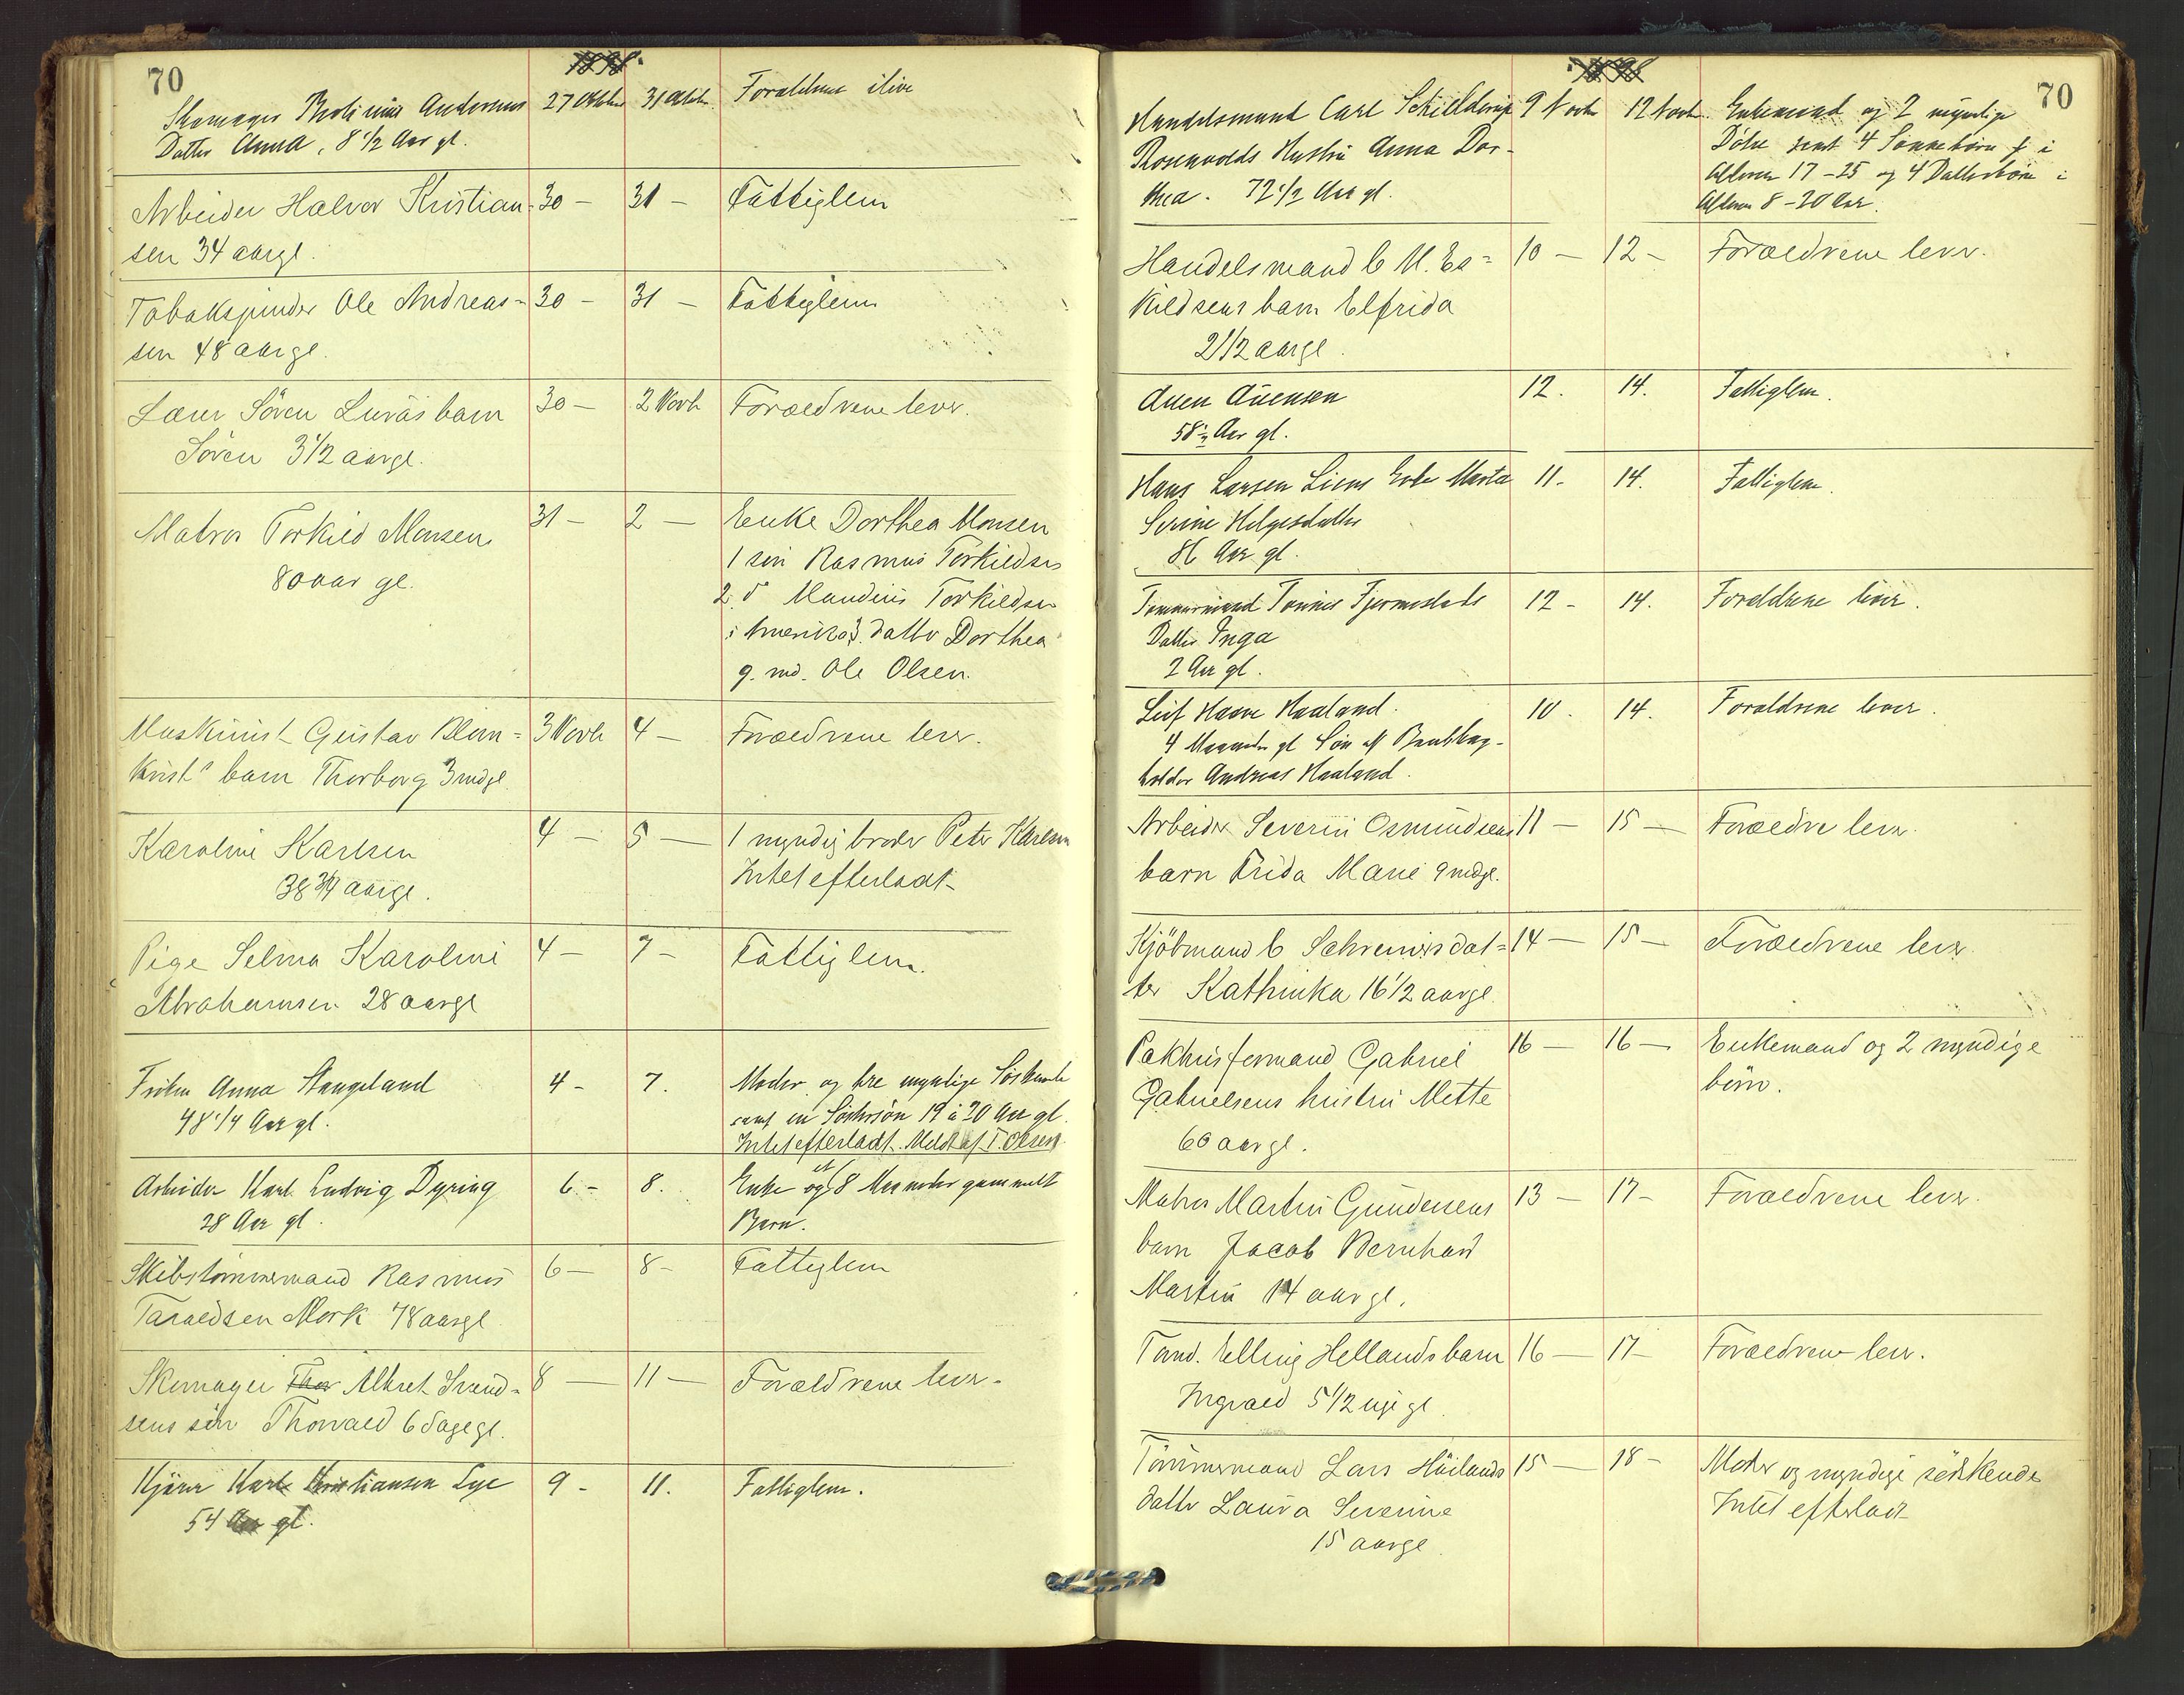 70
1898.
Skomager Andersens 27 Oktbr 31 Oktbr. Forældrene ilive
Datter Anna, 8 1/2 Aar gl.
Arbeider Halvor Kristian- 30 — 31 — Fattiglem
sen 34 aargl.
Tobakspinder Ole Andreas- 30 — 31 — Fattiglem
sen 48 aargl.
Lærer Sören Luraas barn 30 — 2 Novb Forældrene lever.
Sören 3 1/2 aargl.
Matros Torkild Monsen 31 — 2 — Enke Dorthea Monsen
80 aar gl. 1 sön Rasmus Torkildsen
2 d° Mandius Torkildsen
i Amerika 3. datter Dorthea
g. md. Ole Olsen.
Maskinist Gustav Blom- 3 Novb 4 — Forældrene lever.
kvists barn Thorborg 3 mdgl.
Karoline Karlsen 4 — 5 — 1 myndig broder Peter Karlsen
38 3/4 aargl. Intet efterladt
Pige Selma Karoline 4 — 7 — Fattiglem.
Abrahamsen 28 aargl
Frøken Anna Stangeland 4 - 7. Moder og tre myndige Söskende
48 1/4 Aar gl. samt en Søstersøn 19 à 20 Aar gl.
Intet efterladt. Meldt af T. Olsen
Arbeider Karl Ludvig Dyring 6 - 8. Enke og et 8 Maaneder gammelt
28 Aar gl. Barn.
Skibstömmermand Rasmus 6 — 8 - Fattiglem
Taraldsen Mork 78 aargl
Skomager Thor Albret Svend- 8 — 11 — Forældrene lever.
sens sön Thorvald 6 dage gl.
Kjører Karl Kristiansen Lye 9 - 11. Fattiglem.
54 Aar gl.
70
1898
Handelsmand Carl Schielderup 9 Novbr 12 Novbr Enkemand og 2 myndige
Rosenvolds Hustru Anna Dor- Døtre samt 4 Sønnebörn i
thea. 72 1/2 Aar gl. Alderen 17-25 og 4 Datterbörn i
Alderen 8-20 Aar.
Handelsmand C M. Es- 10 — 12 — Forældrene lever.
kildsens barn Elfrida
2 1/2 aargl.
Auen Auensen 12. 14. Fattiglem.
58 1/2 Aar gl.
Hans Larsen Liens Enke Marta 11. 14. Fattiglem.
Serine Helgesdatter
86 Aar gl.
Tømmermand Tønnes Fjermestads 12 - 14. Forældrene lever.
Datter Inga
2 Aar gl.
Leif Haave Haaland. 10. 14. Forældrene lever.
4 Maaneder gl Søn af
holder Andreas Haaland.
Arbeider Severin Osmundsens 11 — 15 — Forældre lever.
barn Frida Marie 9 mdgl.
Kjöbmand C Schreiners dat- 14 — 15 — Forældrene lever
ter Kathinka 16 1/2 aargl.
Pakhusformand Gabriel 16 — 16 — Enkemand og 2 myndige
Gabrielsens hustru Mette börn.
60 aargl.
Matros Martin Gundersens 13 — 17 — Forældrene lever.
barn Jacob Bernhard
Martin 14 aargl.
Tand. Elling Hellands barn 16 — 17 — Forældrene lev.
Ingvald 5 1/2 uge gl.
Tömmermand Lars Höilands 15 — 18 — Moder og myndige söskende
datter Laura Severine Intet efterladt
15 aargl.